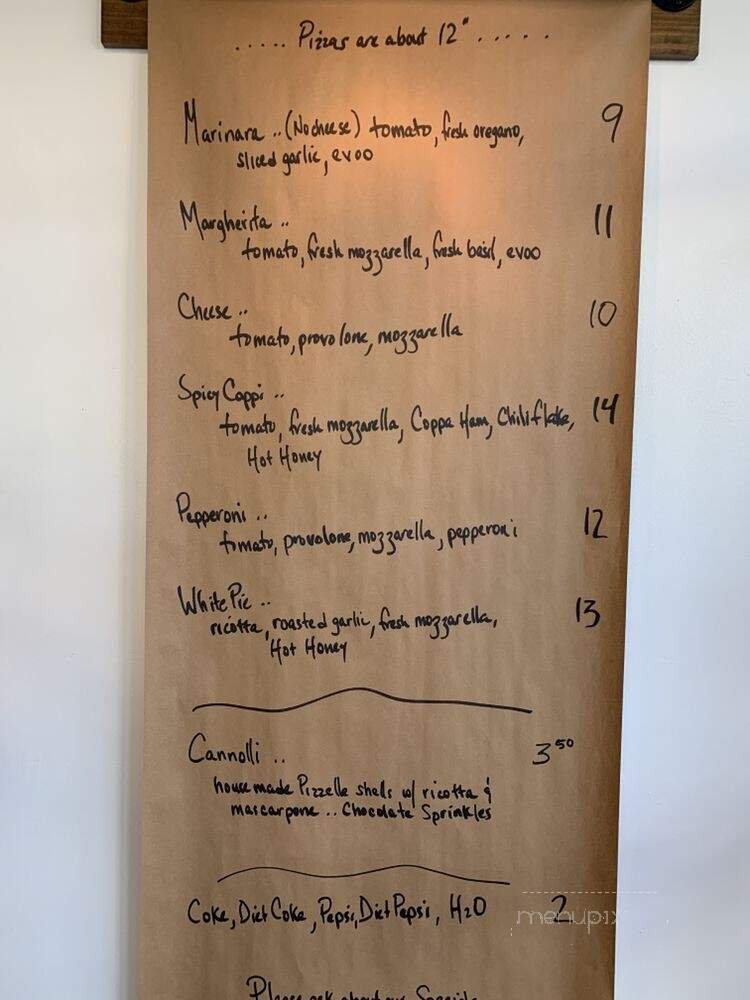 ..... Pizzas are about 12" .....
Marinara .. (No cheese) tomato, fresh oregano, 9
sliced garlic, evoo
Margherita .. 11
tomato, fresh mozzarella, fresh basil, evoo
Cheese .. 10
tomato, provolone, mozzarella
Spicy Coppi .. 14
tomato, fresh mozzarella, Coppa Ham, Chili flake,
Hot Honey
Pepperoni .. 12
tomato, provolone, mozzarella, pepperoni
White Pie .. 13
ricotta, roasted garlic, fresh mozzarella,
Hot Honey
Cannolli .. 3 50
house made Pizzelle shells w/ ricotta &
mascarpone .. Chocolate Sprinkles
Coke, Diet Coke, Pepsi, Diet Pepsi, H2O 2
menupix
Please ask about our Specials